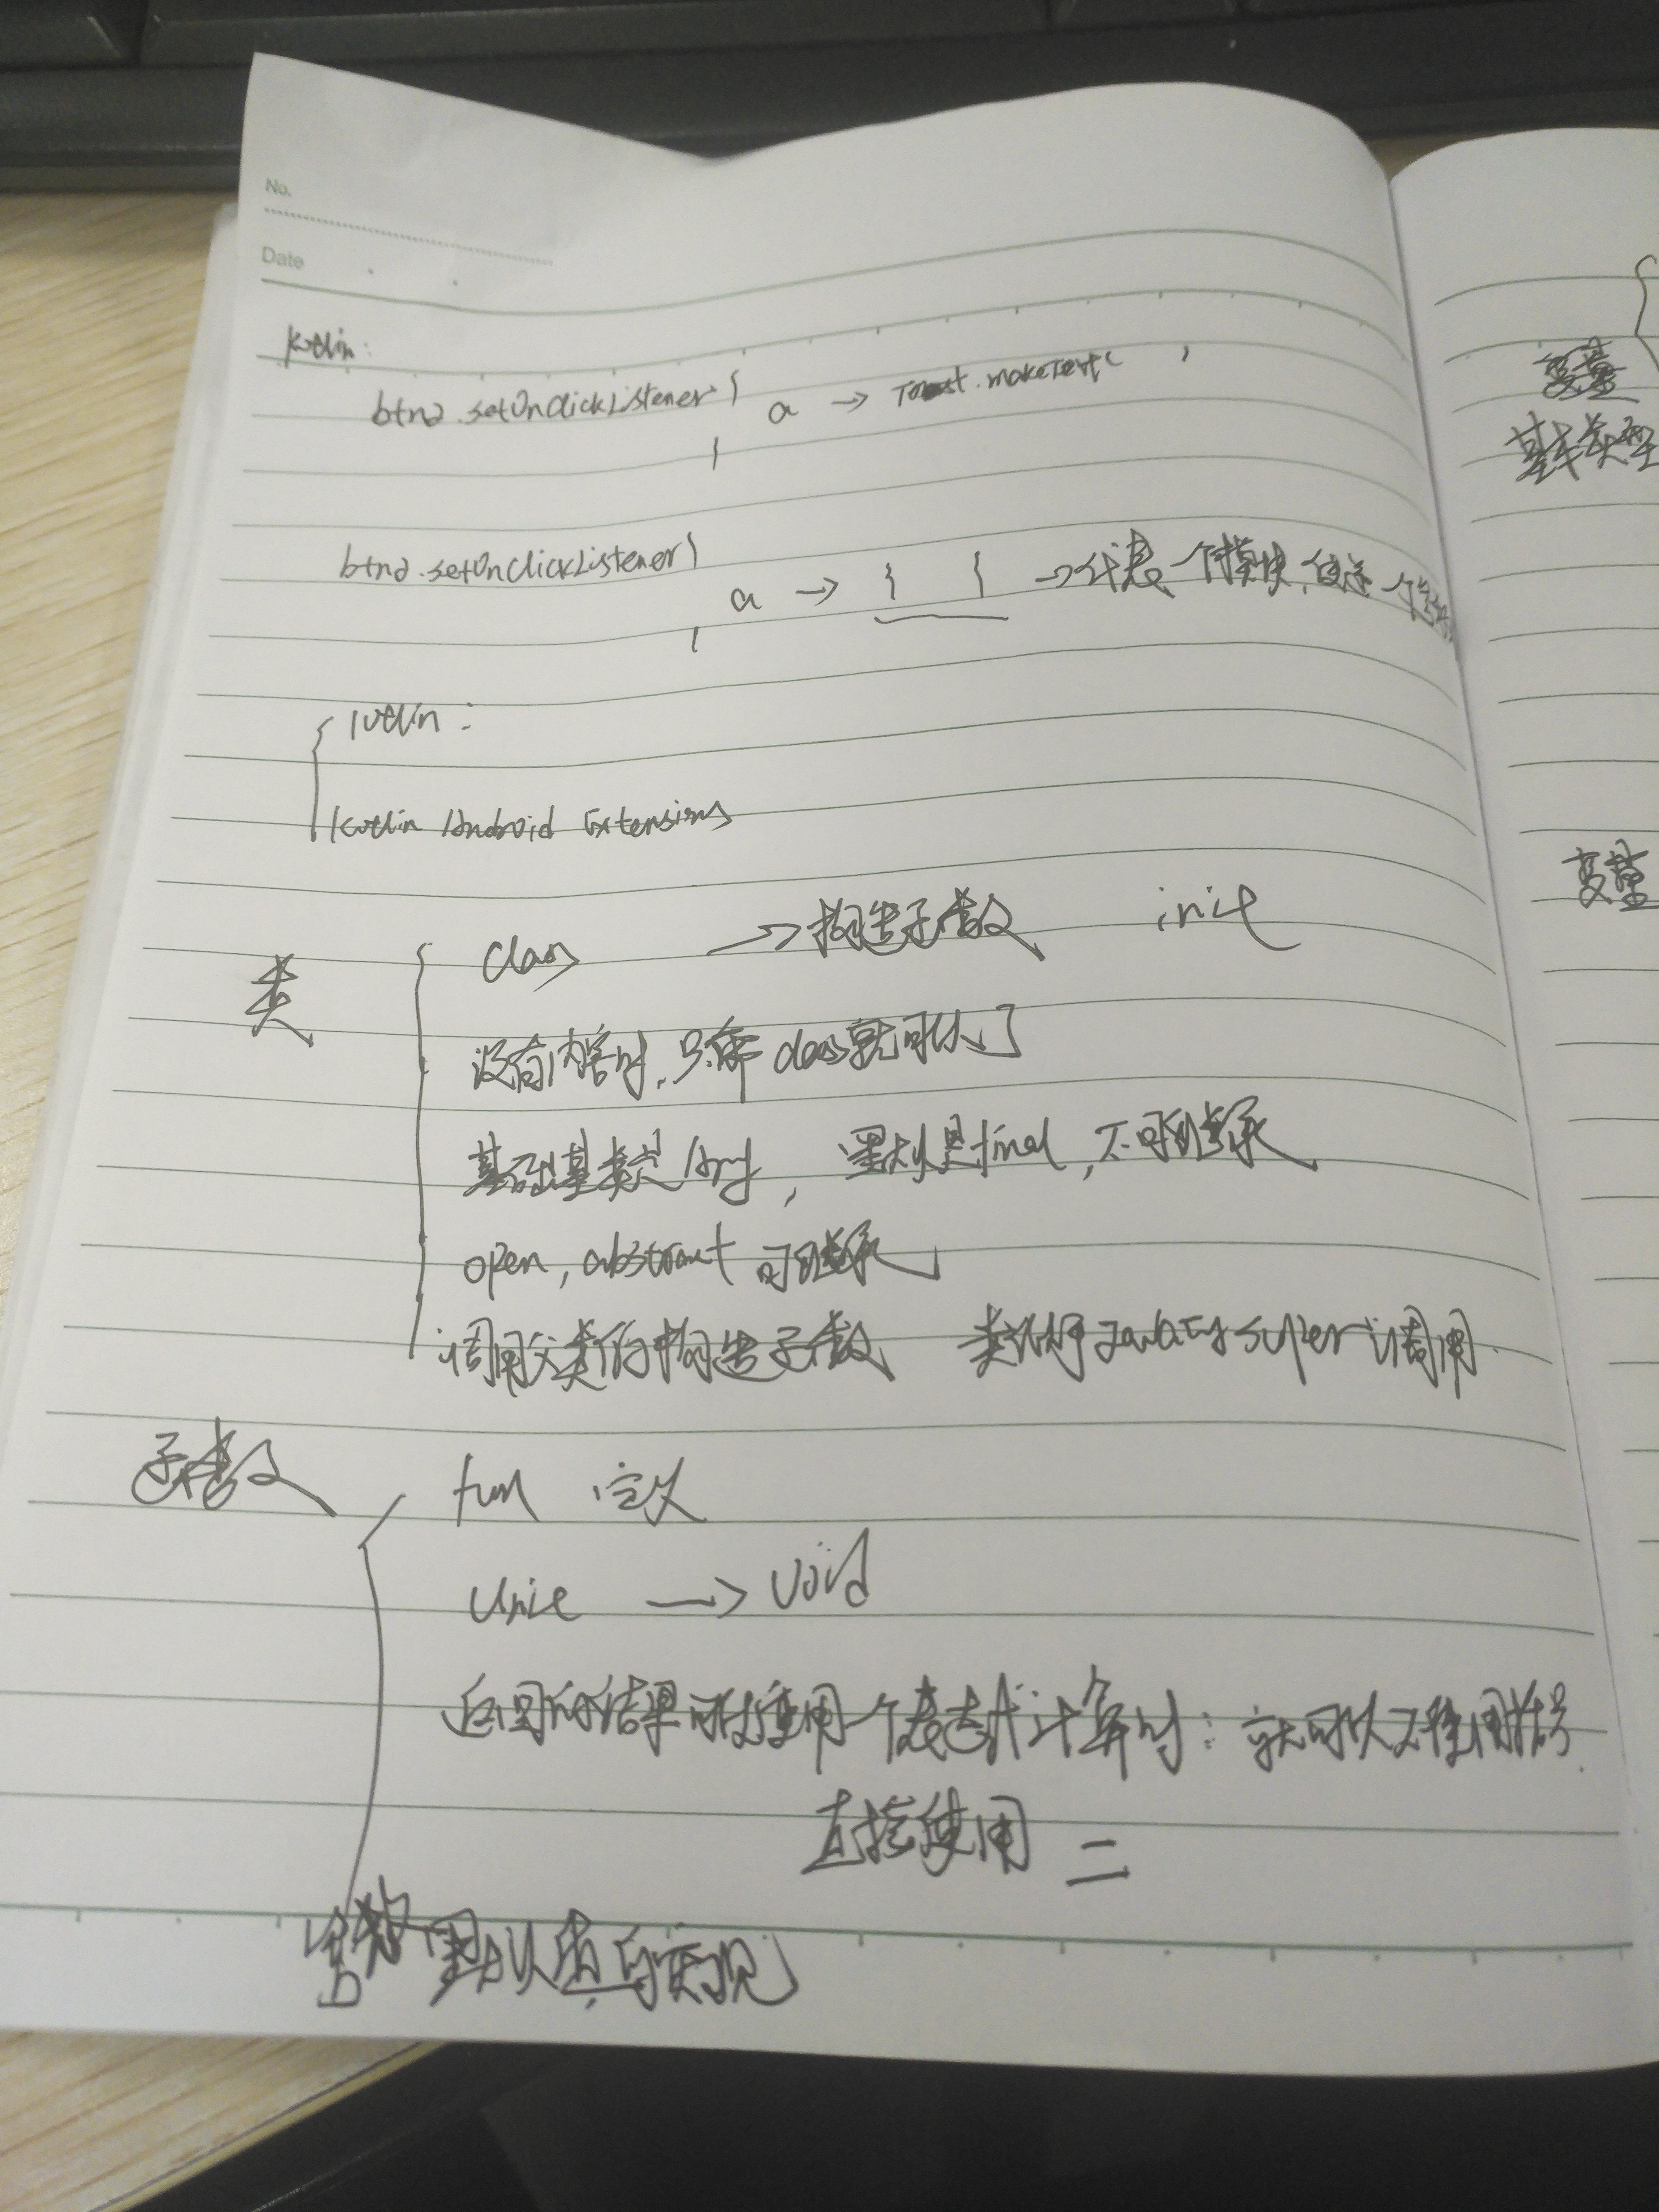 No.
Date
Kotlin:
btn2.setOnClickListener{
a → Toast.makeText( )
}
btn2.setOnClickListener{
a → { } → 代表一个模块,
}
Kotlin:
Kotlin Android Extensions
类
class → 构造函数 init
没有内容时,只需class就可以了
基础基类是Any, 默认是final,不可继承
open, abstract 可继承
调用父类的构造函数 类似于Java的super调用
函数
fun 定义
Unit → void
返回的结果可以使用一个表达式计算时: 就可以不使用括号.
直接使用 =
参数默认值
变量
基本类型
变量